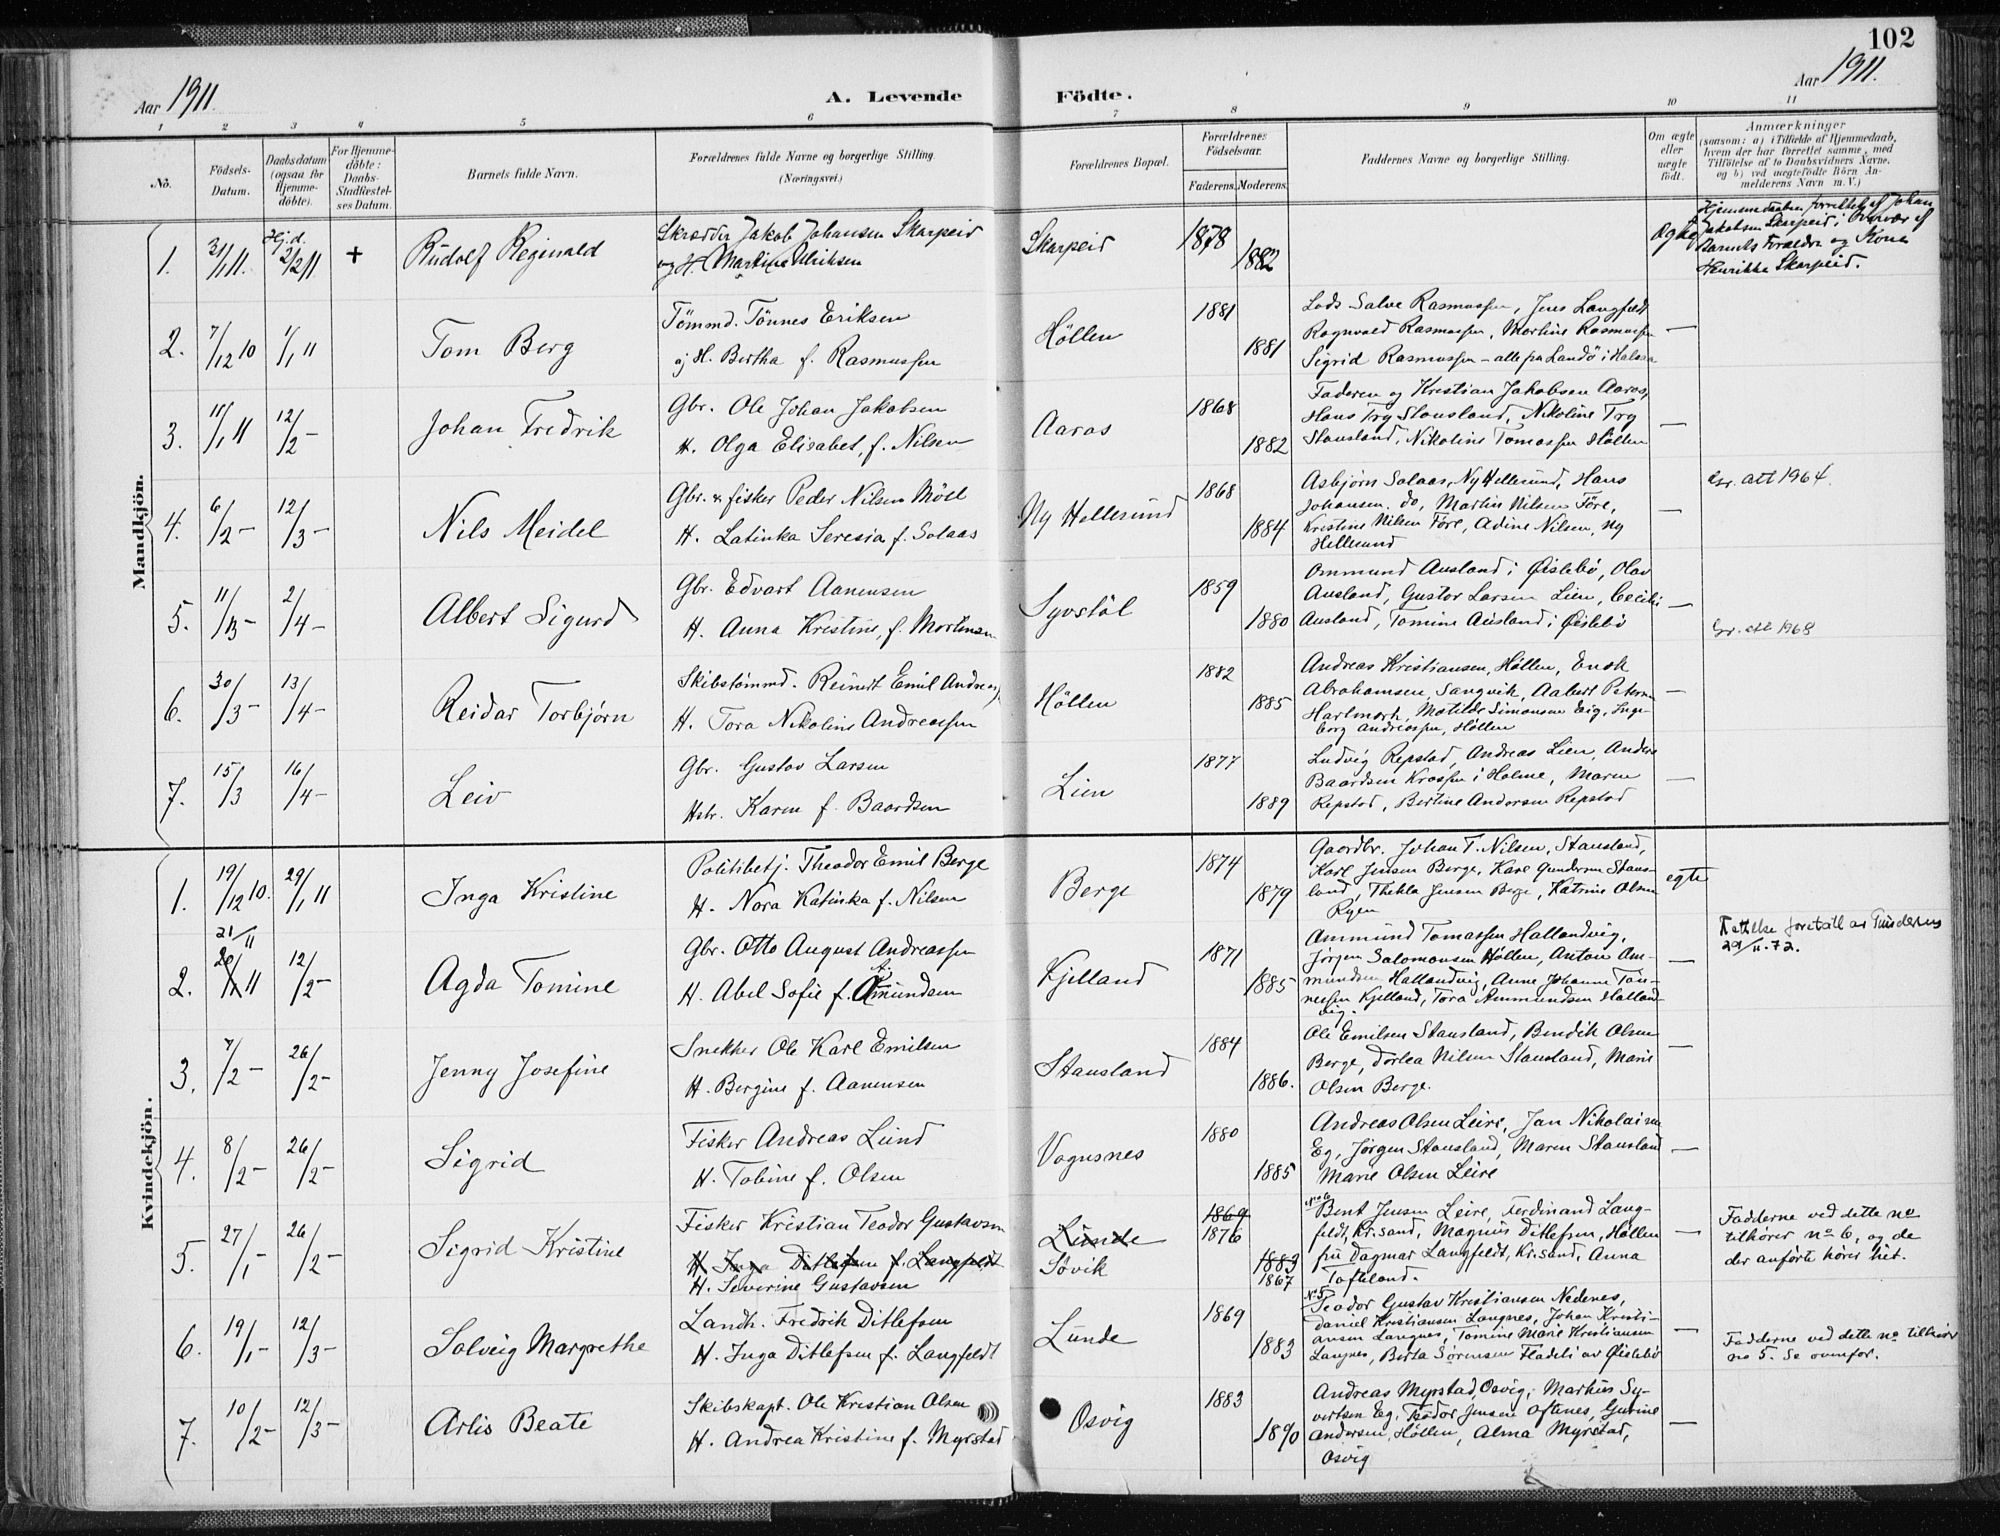 102
Aar 1911.
A. Levende Födte.
Aar 1911.
1 2 3 4 5 6 7 8 9 10 11
No.
Födsels-
Datum.
Daabsdatum
(ogsaa for
Hjemme-
döbte).
For Hjemme-
döbte:
Daabs-
Stadfæstel-
ses Datum.
Barnets fulde Navn.
Forældrenes fulde Navne og borgerlige Stilling.
(Næringsvei.)
Forældrenes Bopæl.
Forældrenes
Födselsaar.
Faderens. Moderens.
Faddernes Navne og borgerlige Stilling.
Om ægte
eller
uægte
født.
Anmærkninger
(saasom: a) i Tilfælde af Hjemmedaab,
hvem der har forrettet samme, med
Tilföielse af to Daabsvidners Navne,
og b) ved uægtefödte Börn An-
melderens Navn m.V.)
Mandkjön.
1. 31/1 11. Hj.d. 2/2 11 + Rudolf Reginald
Skrædder Jakob Johansen Skarpeid
og H. Martine Ulriksen
Skarpeid 1878 1882 Ægte
Hjemmedaaben forrettet af Johan
Jakobsen Skarpeid i Overvær af
Barnets Forældre og Kone
Henrikke Skarpeid.
2. 7/12 10 1/1 11 Tom Berg
Tömmd. Tönnes Eriksen
og H. Bertha f. Rasmussen
Höllen 1881 1881
Lods Salve Rasmussen, Jens Langfeldt
Ragnvald Rasmussen, Martine Rasmussen
Sigrid Rasmussen - alle paa Landö i Halsaa —
3. 11/1 11 12/2 - Johan Fredrik
Gbr. Ole Johan Jakobsen
H. Olga Elisabet, f. Nilsen
Aaros 1868 1882
Faderen og Kristian Jakobsen Aaros,
Hans Try Stausland, Nikoline Try
Stausland, Nikoline Tomassen Höllen —
4. 6/2 - 12/3 - Nils Meidel
Gbr. & fisker Peder Nilsen Mösl
H. Latinka Seresia f. Solaas
Ny Hellesund 1868 1884
Asbjörn Solaas, Ny Hellesund, Hans
Johansen, do, Martin Nilsen Töre,
Kristine Nilsen Töre, Adine Nilsen, Ny
Hellesund —
Gr. att 1964.
5. 11/3 - 2/4 - Albert Sigurd
Gbr. Edvart Aanensen
H. Anna Kristine, f. Mortensen
Syvstöl 1859 1880
Ommund Ausland i Øislebö, Olav
Ausland, Gustav Larsen Lien, Cecilie
Ausland, Tomine Ausland i Øislebö —
Gr. att 1968
6. 30/3 - 13/4 - Reidar Torbjørn
Skibstömmd. Reinert Emil Andreassen
H. Tora Nikoline Andreassen
Höllen 1882 1885
Andreas Kristiansen, Höllen, Enok
Abrahamsen, Sangvik, Aabert Petersen
Hartmark, Matilde Simonsen Eig, Inge-
borg Andreassen, Höllen —
7. 15/3 16/4 - Leiv
Gbr. Gustav Larsen
Hstr. Karen f. Baardsen
Lien 1877 1889
Ludvig Repstad, Andreas Lien, Anders
Baardsen Krossen i Holme, Maren
Repstad, Bertine Andersen Repstad —
Kvindekjön.
1. 19/12 10. 29/1 11 Inga Kristine
Politibetj. Theodor Emil Berge
H. Nora Katinka f. Nilsen
Berge 1874 1879
Gaardbr. Johan T. Nilsen, Stausland,
Karl Jensen Berge, Karl Gundersen Staus-
land, Thekla Jensen Berge, Katrine Olsen
Ryen
egte
2. 21/11 20/1 11 12/2 - Agda Tomine
Gbr. Otto August Andreassen
H. Abel Sofie f. Amundsen
Kjelland 1871 1885
Ammund Tomassen Hallandvig,
Jörgen Salomonsen Höllen, Anton Am-
mundsen Hallandvig, Anne Johanne Tön-
nessen Kjelland, Tora Ammundsen Halland-
vig. —
Rettelse foretatt av
29/11.72.
3. 7/2 - 26/2 - Jenny Josefine
Snekker Ole Karl Emilsen
H. Bergine f. Aanensen
Stausland 1884 1886.
Ole Emilsen Stausland, Bendik Olsen
Berge, Dorlea Nilsen Stausland, Marie
Olsen Berge. —
4. 8/2 - 26/2 - Sigrid
Fisker Andreas Lund
H. Tobine f. Olsen
Vagusnes 1880 1885
Andreas Olsen Leire, Jan Nikolaisen
Eg, Jörgen Stausland, Maren Stausland
Marie Olsen Leire —
5. 27/1 - 26/2 - Sigrid Kristine
Fisker Kristian Teodor Gustavsen
H. Inga Ditlefsen f. Langfeldt
H. Severine Gustavsen
Lunde
Søvik 1869 1876 1883 1867
No 6
Bent Jensen Leire, Ferdinand Lang-
feldt, Kr.sand, Magnus Ditlefsen, Höllen
fru Dagmar Langfeldt, Kr.sand, Anna
Tofteland. —
Fadderne ved dette no
tilhører no 6, og de
der anførte hører hit.
6. 19/1 - 12/3 - Solveig Margrethe
Landh. Fredrik Ditlefsen
H. Inga Ditlefsen f. Langfeldt
Lunde 1869 1883
No 5
Teodor Gustav Kristiansen Nedenes,
Daniel Kristiansen Langnes, Johan Kristi-
ansen Langnes, Tomine Marie Kristiansen
Langnes, Berta Sörensen Fladeli av Øislebö —
Fadderne ved dette no tilhører
no 5. Se ovenfor.
7. 10/2 - 12/3 - Arlis Beate
Skibskapt. Ole Kristian Olsen
H. Andrea Kristine f. Myrstad
Osvig 1883 1890
Andreas Myrstad, Osvig, Markus Sy-
vertsen Eg, Teodor Jensen Oftenes, Gurine
Andersen, Höllen, Alma Myrstad,
Osvig —